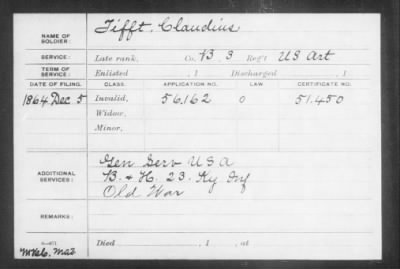 NAME OF SOLDIER: Tifft, Claudius
SERVICE: Late rank, Co. B 3 Reg't US Art
TERM OF SERVICE: Enlisted , 1 Discharged , 1
DATE OF FILING. CLASS. APPLICATION NO. LAW CERTIFICATE NO.
1864 Dec 5 Invalid, 56.162 0 51.450
Widow,
Minor,
ADDITIONAL SERVICES:
Gen Serv USA
B. & H. 23. Ky Inf
Old War
REMARKS:
Died , 1 , at